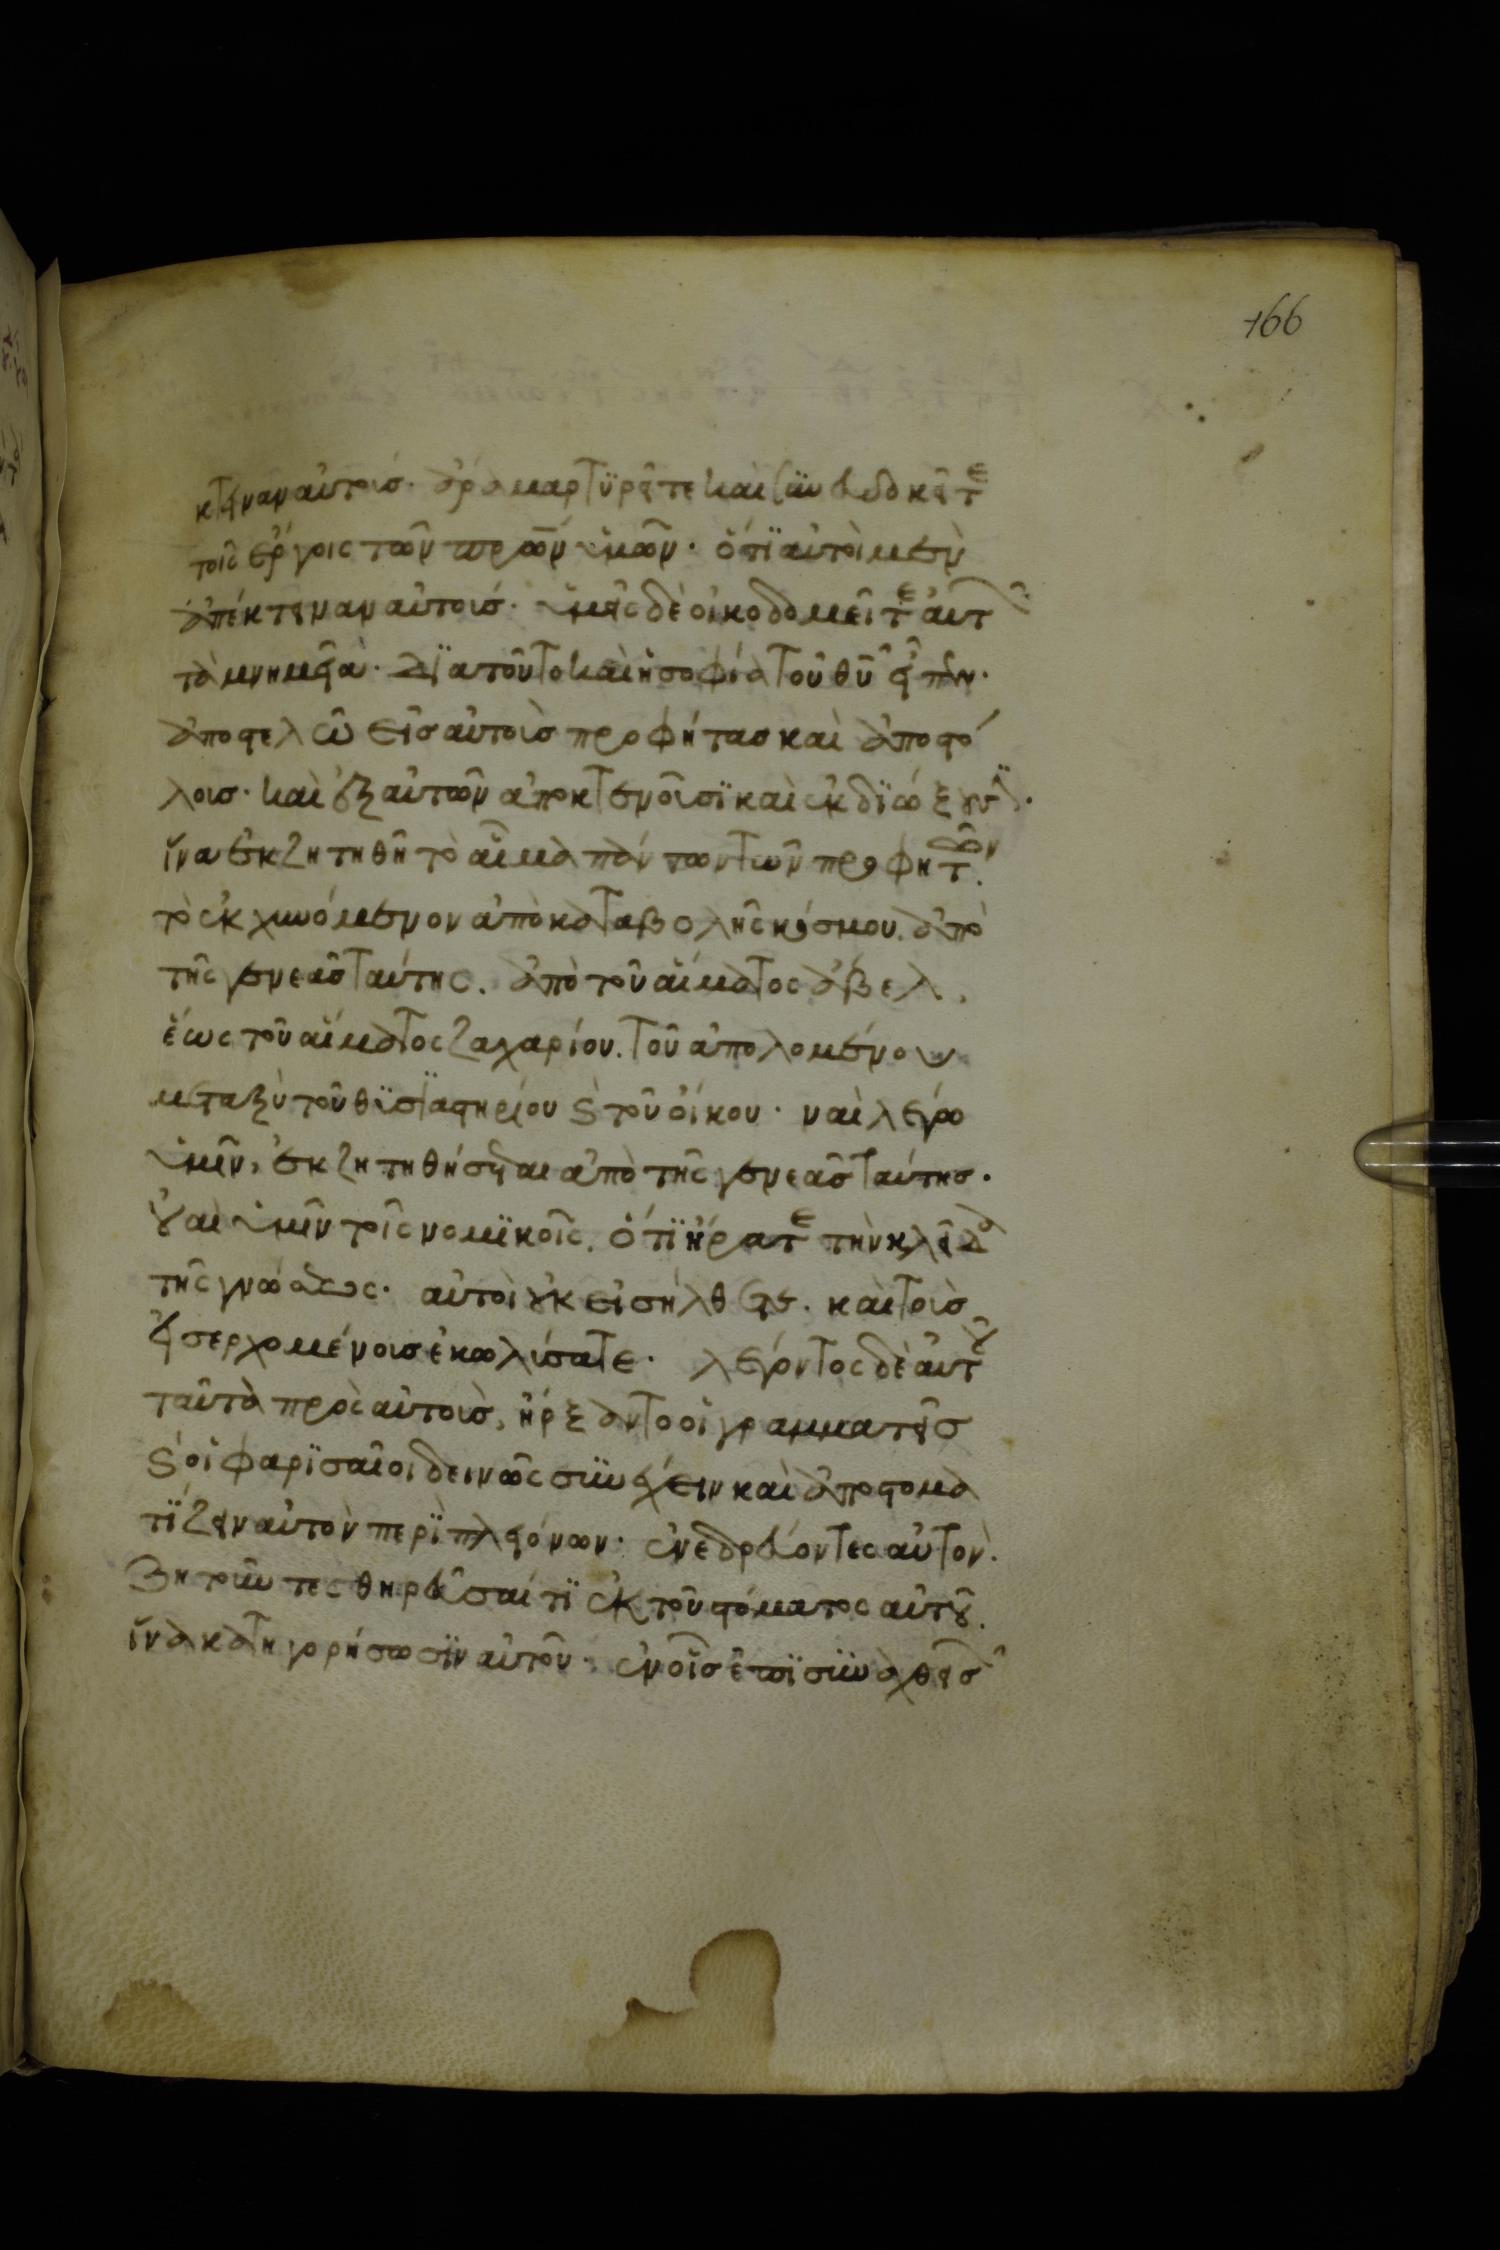 166
κτειναν αὐτοισ· ἄρα μαρτϋρεῖτε καὶ σϋνευδοκεῖτε
τοῖς ἔργοις τῶν πρων ὑμῶν· ὅτϊ αὐτοὶ μεν
ἀπέκτειναν αὐτοισ· ὑμεῖς δὲ οἰκοδομεῖτε αὐτῶν
τὰ μνημεῖα· Δϊατοῦτο καὶ ἡ σοφία τοῦ θῦ εἶπεν·
ἀποστελῶ εἰσ αὐτοισ προφήτασ καὶ ἀποστό
λοισ· καὶ ἐξ αὐτῶν ἀποκτενοῖσϊ καὶ ἐκδϊώξουσϊν·
ἵνα ἐκζητηθῆ τὸ αἷμα πάντων τῶν προφητῶν.
τὸ ἐκχυνόμενον ἀπὸ καταβολῆς κόσμου. ἀπὸ
τῆς γενεᾶσ ταύτης. ἀπὸ τοῦ αἵματος ἄβελ.
ἕως τοῦ αἵματος ζαχαρίου. τοῦ ἀπολομένου
μεταξὺ τοῦ θϋσϊαστηρίου ϗ τοῦ οἴκου· ναὶ λεγω
ὑμῖν, ἐκζητηθήσεται ἀπὸ τῆς γενεᾶσ ταύτησ.
Οὐαὶ ὑμῖν τοῖς νομϊκοῖς. ὅτϊ ἤρατε τὴν κλεῖδα
τῆς γνώσεως· αὐτοὶ οὐκ εἰσήλθετε. καὶ τοισ
εἰσερχομένοισ ἐκωλίσατε· λέγοντος δὲ αὐτοῦ
ταῦτα πρὸς αὐτοισ, ἤρξαντο οἱ γραμματεῖσ
ϗ οἱ φαρϊσαῖοι δεινῶς σϋνέχειν καὶ ἀποστομα
τϊζειν αὐτὸν περϊ πλειόνων· ἐνεδρεύοντες αὐτον.
Ζητοῦντες θηρεῦσαί τϊ ἐκ τοῦ στόματος αὐτοῦ.
ἵνα κατηγορήσωσϊν αὐτοῦ· ἐν οἷσ ἐπϊσϋναχθεισῶν